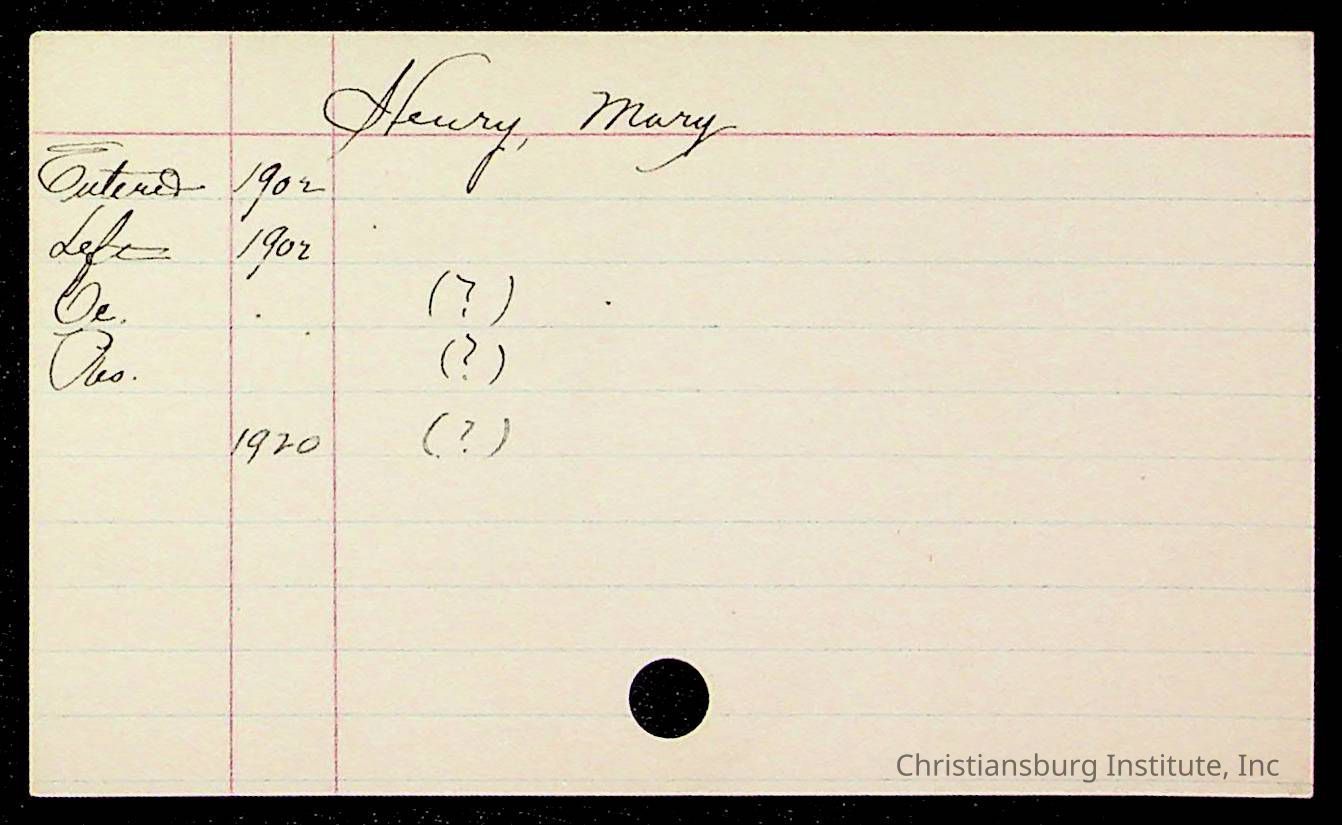 Henry, Mary
Entered 1902
Left 1902
Oc. (?)
Res. (?)
1920 (?)
Christiansburg Institute, Inc